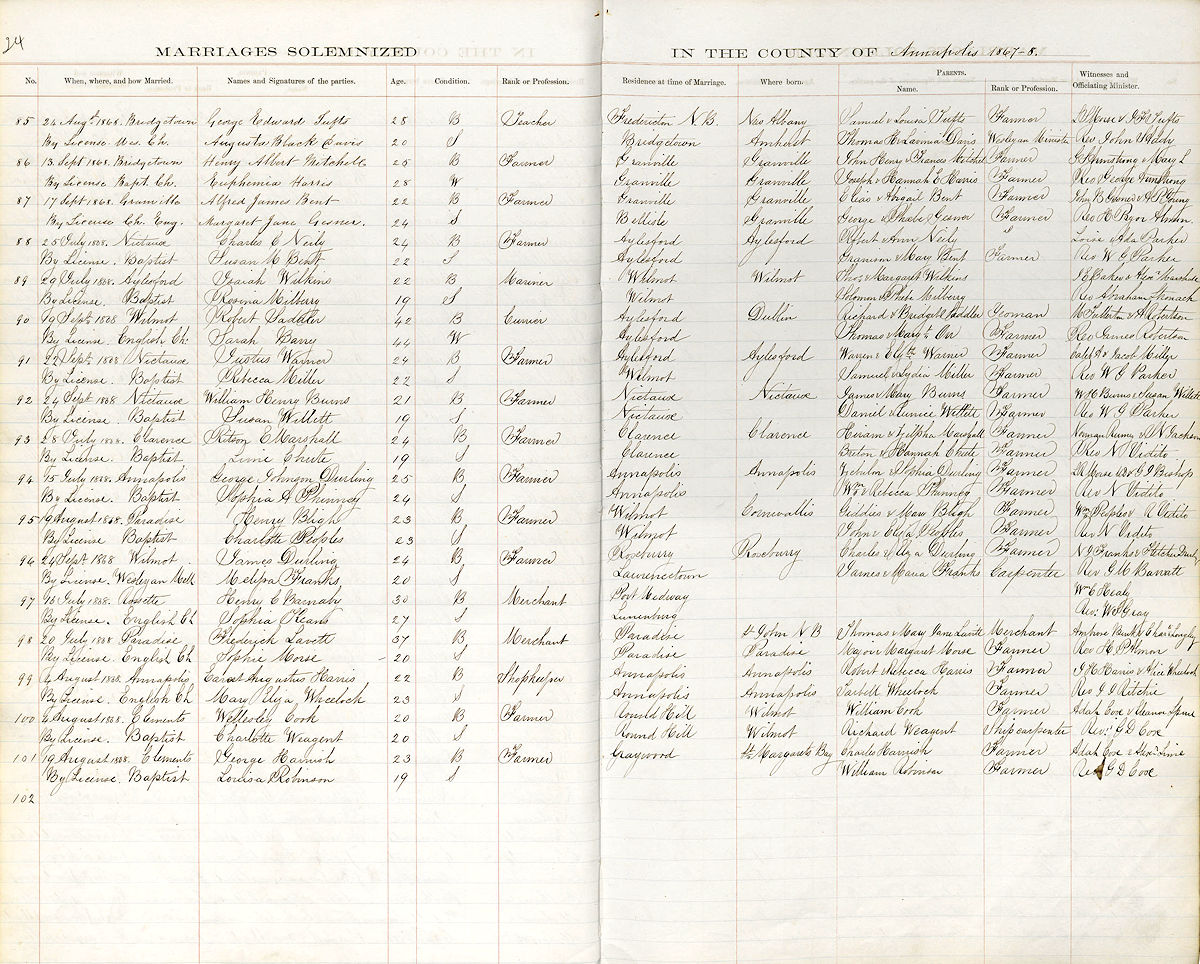 24
MARRIAGES SOLEMNIZED IN THE COUNTY OF Annapolis 1867-8.
No. When, where, and how Married. Names and Signatures of the parties. Age. Condition. Rank or Profession. Residence at time of Marriage. Where born. PARENTS. Name. Rank or Profession. Witnesses and Officiating Minister.
85 24 Augt. 1868. Bridgetown George Edward Tufts 28 B Teacher Fredericton N.B New Albany Samuel & Louisa Tufts Farmer
By License Wes. Ch. Augusta Black Davis 20 S Bridgetown Amherst Thomas H & Lavinia Davis Wesleyan Minister Rev John
86 13 Sept 1868. Bridgetown Henry Albert Mitchell 25 B Farmer Granville Granville John Henry & Frances Mitchel Farmer J Armstrong & Mary L
By License Bapt. Ch. Euphemia Harris 28 W Granville Granville Joseph & Hannah E Harris Farmer Rev George Armstrong
87 17 Sept 1868. Granville Alfred James Bent 22 B Farmer Granville Granville Elias & Abigail Bent Farmer John B Gesner & A P Young
By License Ch. Eng. Margaret Jane Gesner. 24 S Bellisle Granville George & Phebe Gesner Farmer Rev H Pryor Almon
88 25 July 1868. Nictaux Charles C Neily 24 B Farmer Aylesford Aylesford Robert & Ann Neily " Loise & Ada Parker
By License. Baptist Susan M Bent 22 S Aylesford Granison & Mary Bent Farmer Rev W G Parker
89 29 July 1868. Aylesford Isaiah Wilkins 22 B Mariner Wilmot Wilmot Thos. & Margaret Wilkins J E Baker &
By License. Baptist Rosina Milbery 19 S Wilmot Solomon & Phebe Milbery Rev Abraham Stronach
90 Septr 1868 Wilmot Robert Saddler 42 B Currier Aylesford Dublin Richard & Bridget Saddler Yeoman M Fullerton & A Robertson
By License. English Ch. Sarah Barry 44 W Aylesford Thomas & Mary Orr Farmer Rev James Robertson
91 22 Sept. 1868 Nictaux Justus Warner 24 B Farmer Aylesford Aylesford Warren & Elizth Warner Farmer Caleb & Jacob Miller
By License. Baptist Rebecca Miller 22 S Wilmot Samuel & Lydia Miller Farmer Rev W G Parker
92 24 Sept 1868 Nictaux William Henry Burns 21 B Farmer Nictaux Nictaux James & Mary Burns Farmer W H Burns & Susan Willett
By License. Baptist Susan Willett 19 S Nictaux Daniel & Eunice Willett Farmer Rev W G Parker
93 28 July 1868. Clarence Ritson C Marshall 24 B Farmer Clarence Clarence Hiram & Zilpha Marshall Farmer
By License. Baptist Chute 19 S Clarence & Hannah Chute Farmer Rev N Vidito
94 15 July 1868. Annapolis George Johnson Durling 25 B Farmer Annapolis Annapolis Zebulon & Sophia Durling Farmer
By License. Baptist Sophia A Phinney 24 S Annapolis Wm & Rebecca Phinney Farmer Rev N Vidito
95 19 August 1868. Paradise Henry Bligh 23 B Farmer Wilmot Cornwallis Geddies & Mary Bligh Farmer
By License Baptist Charlotte Peoples 23 S Wilmot John & Eliza Peoples Farmer Rev N Vidito
96 24 Sept. 1868 Wilmot James Durling 24 B Farmer Roseberry Roseberry Charles & Eliza Durling Farmer
By License. Wesleyan Meth Melissa Franks 20 S Lawrencetown James & Maria Franks Carpenter Rev G M Barratt
97 13 July 1868. Rosette Henry C Barnaby 30 B Merchant Port Medway Wm C Healy
By License. English Ch Sophia Kears 27 S Lunenburg Rev. Wm Gray
98 20 July 1868 Paradise Frederick Lavett 37 B Merchant Paradise St John N B Thomas & Mary Jane Lavett Merchant
By License. English Ch Sophie Morse 20 S Paradise Paradise Major & Margaret Morse Farmer Rev H P Almon
99 4 August 1868. Annapolis Augustus Harris 22 B Shopkeeper Annapolis Annapolis Robert & Rebecca Harris Farmer J H Harris & Alice Wheelock
By License. English Ch Mary Eliza Wheelock 23 S Annapolis Annapolis Wheelock Farmer Rev J J Ritchie
100 4 August 1868. Clements Wellesley Cook 20 B Farmer Round Hill Wilmot William Cook Farmer
By License. Baptist Charlotte Weagent 20 S Round Hill Wilmot Richard Weagent Ship carpenter Rev. G D Cox
101 19 August 1868. Clements George Harnish 23 B Farmer Graywood St Margarets Bay Charles Harnish Farmer
By License. Baptist Louisa Robinson 19 S William Robinson Farmer Rev G D Cox
102